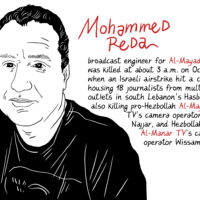 Mohammed
Reda
broadcast engineer for Al-Mayad
was killed at about 3 a.m. on Oc
when an Israeli airstrike hit a c
housing 18 journalists from mult
outlets in south Lebanon's Hasb
also killing pro-Hezbollah Al-Ma
TV's camera operator
Najjar, and Hezbollah
Al-Manar TV's ca
operator Wissam